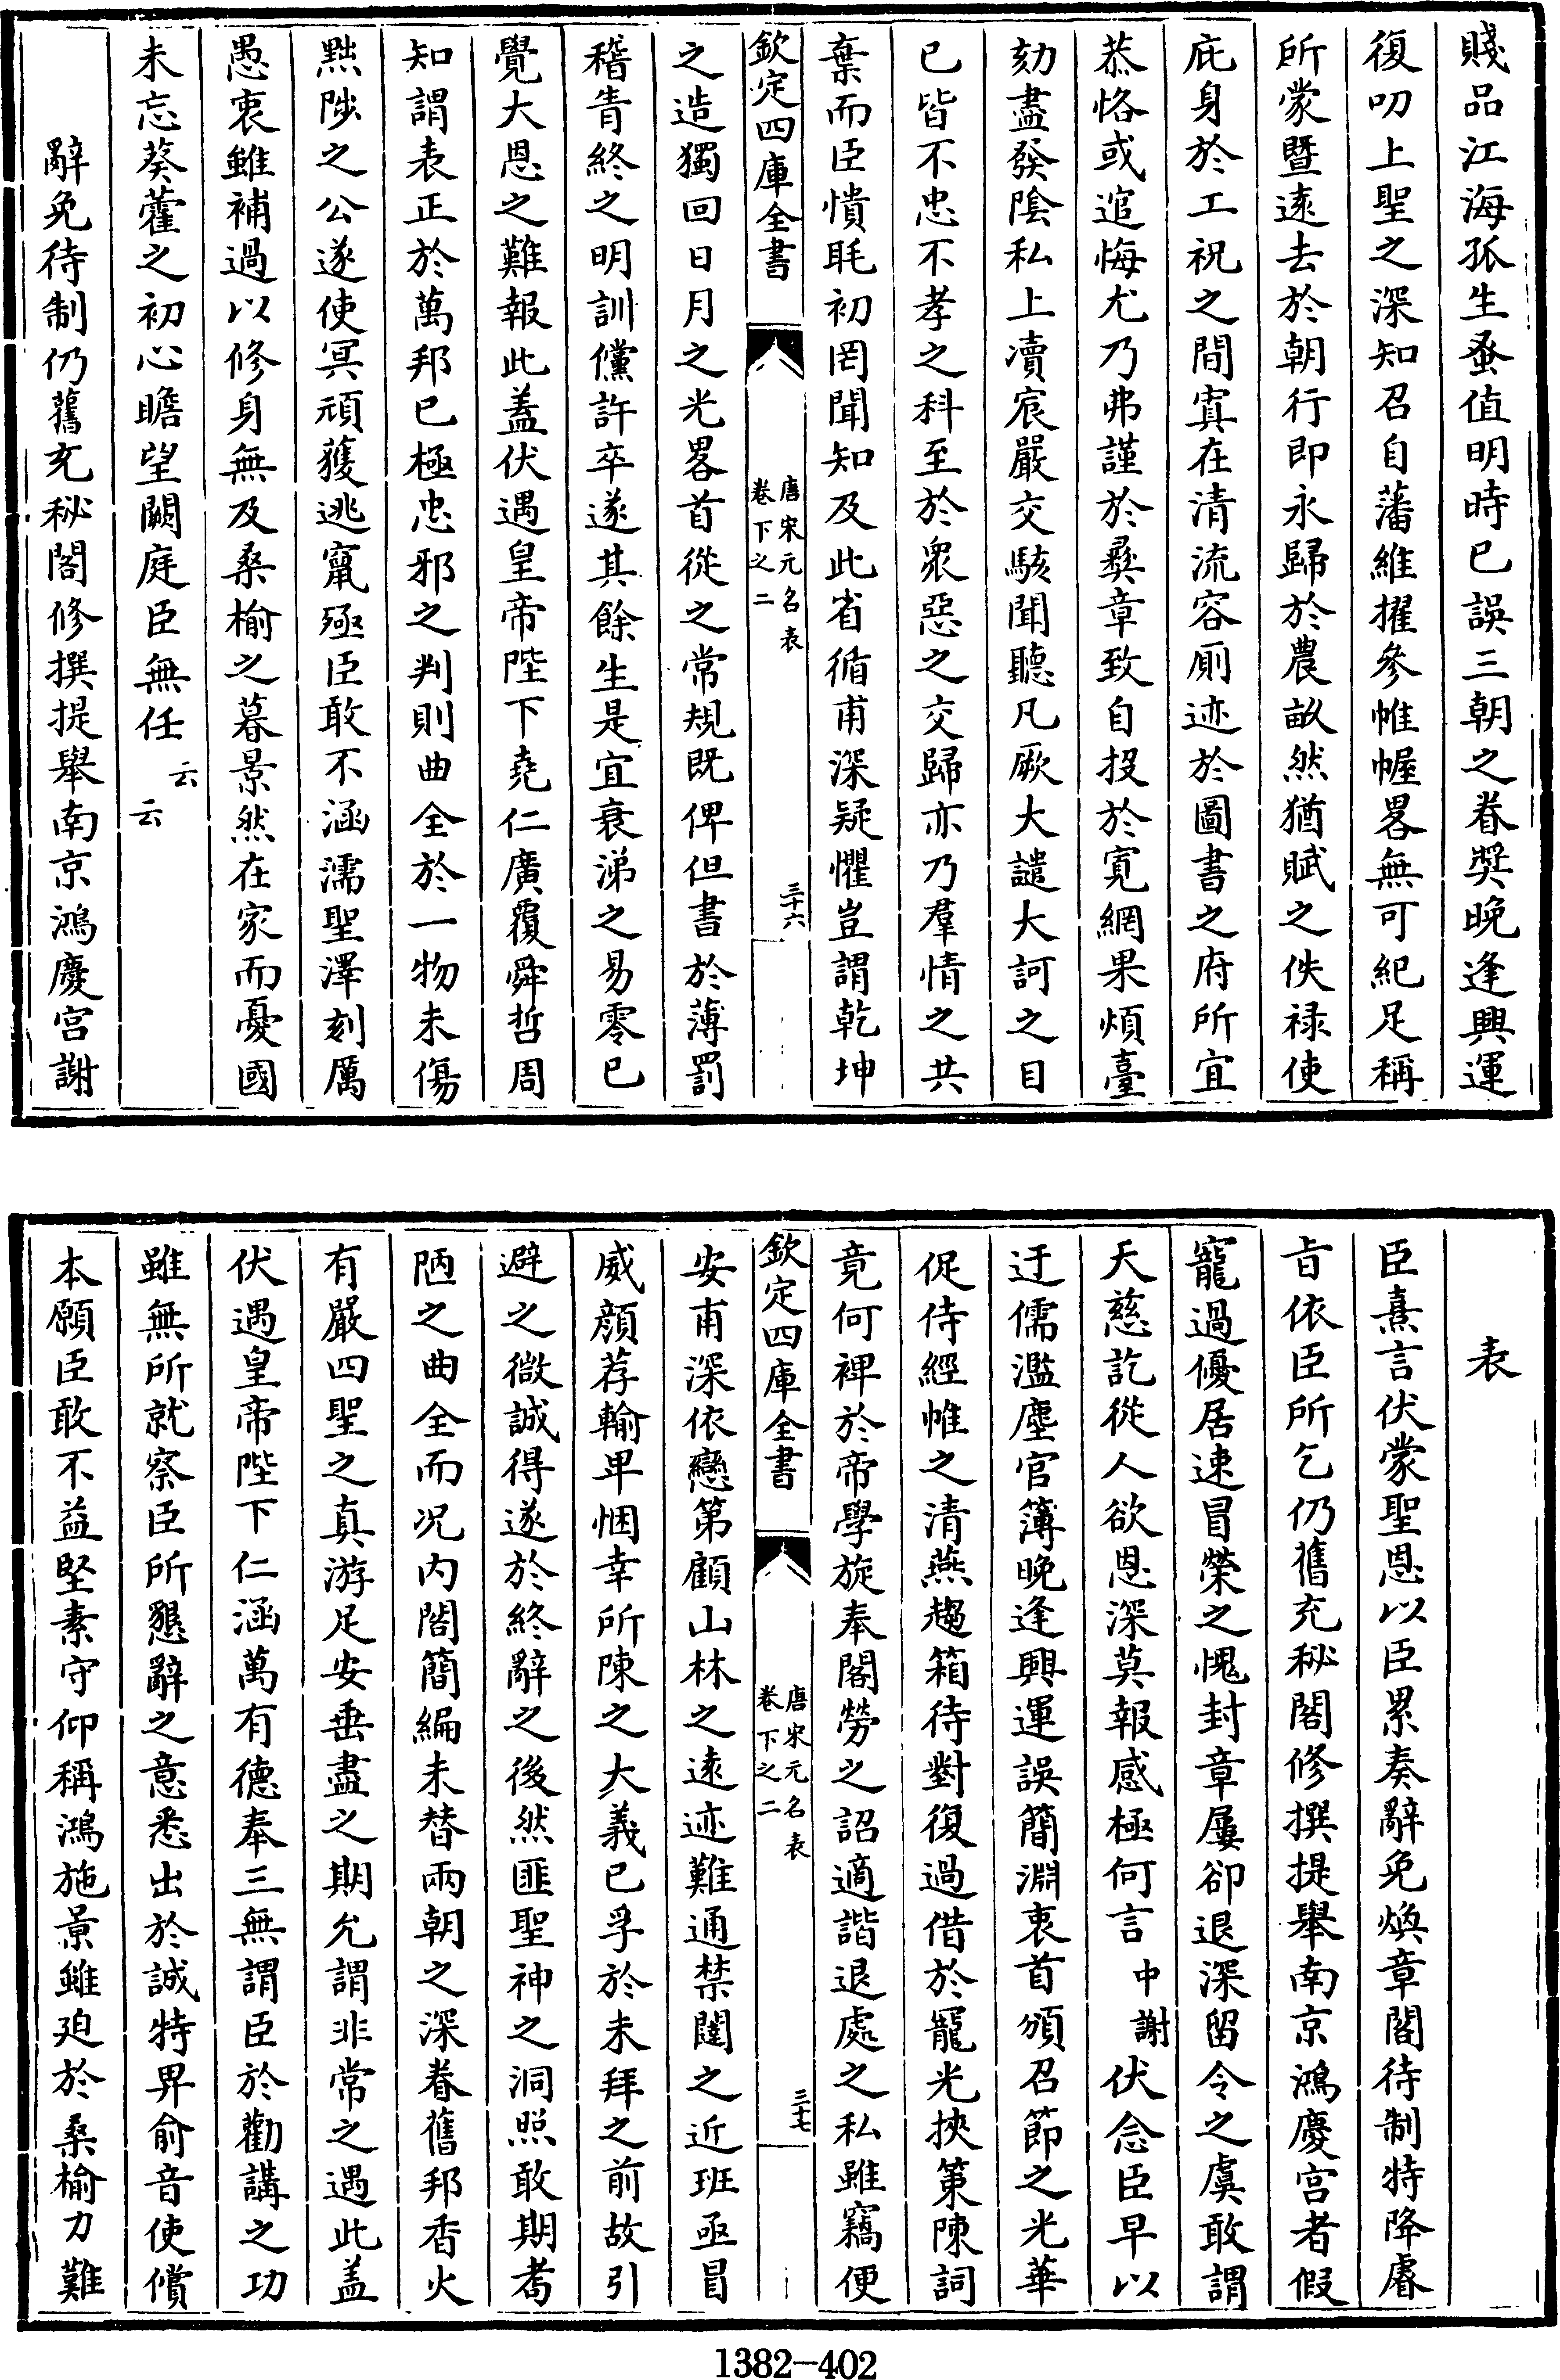 賤品江海孤生蚤值明時已誤三朝之眷奬晩逢興運
復叨上聖之深知召自藩維擢參帷幄畧無可紀足稱
所蒙暨逺去於朝行即永歸於農畝然猶賦之佚禄使
庇身於工祝之間寘在清流容厠迹於圖書之府所宜
恭恪或追悔尤乃弗謹於彛章致自投於寛網果煩臺
劾盡發隂私上凟宸嚴交駭聞聽凡厥大譴大訶之目
已皆不忠不孝之科至於衆惡之交歸亦乃羣情之共
棄而臣憒眊初罔聞知及此省循甫深疑懼豈謂乾坤
欽定四庫全書
唐宋元名表
卷下之二
三十六
之造獨回日月之光畧首從之常規既俾但書於薄罰
稽青終之明訓儻許卒遂其餘生是宜衰涕之易零已
覺大恩之難報此蓋伏遇皇帝陛下堯仁廣覆舜哲周
知謂表正於萬邦已極忠邪之判則曲全於一物未傷
黜陟之公遂使冥頑獲逃竄殛臣敢不涵濡聖澤刻厲
愚衷雖補過以修身無及桑榆之暮景然在家而憂國
未忘葵藿之初心瞻望闕庭臣無任云云
辭免待制仍舊充秘閣修撰提舉南京鴻慶宫謝
表
臣熹言伏蒙聖恩以臣累奏辭免煥章閣待制特降睿
旨依臣所乞仍舊充秘閣修撰提舉南京鴻慶宫者假
寵過優居速冒榮之愧封章屢卻退深留令之虞敢謂
天慈訖從人欲恩深莫報感極何言中謝伏念臣早以
迂儒濫塵官簿晩逢興運誤簡淵衷首頒召節之光華
促侍經帷之清燕趨箱待對復過借於寵光挾策陳詞
竟何裨於帝學旋奉閣勞之詔適諧退處之私雖竊便
欽定四庫全書
唐宋元名表
卷下之二
三十七
安甫深依戀第顧山林之逺迹難通禁闥之近班亟冒
威顔荐輸卑悃幸所陳之大義已孚於未拜之前故引
避之微誠得遂於終辭之後然匪聖神之洞照敢期耇
陋之曲全而况内閣簡編未替兩朝之深眷舊邦香火
有嚴四聖之真游足安垂盡之期允謂非常之遇此蓋
伏遇皇帝陛下仁涵萬有德奉三無謂臣於勸講之功
雖無所就察臣所懇辭之意悉出於誠特畀俞音使償
本願臣敢不益堅素守仰稱鴻施景雖廹於桑榆力難
1382-402